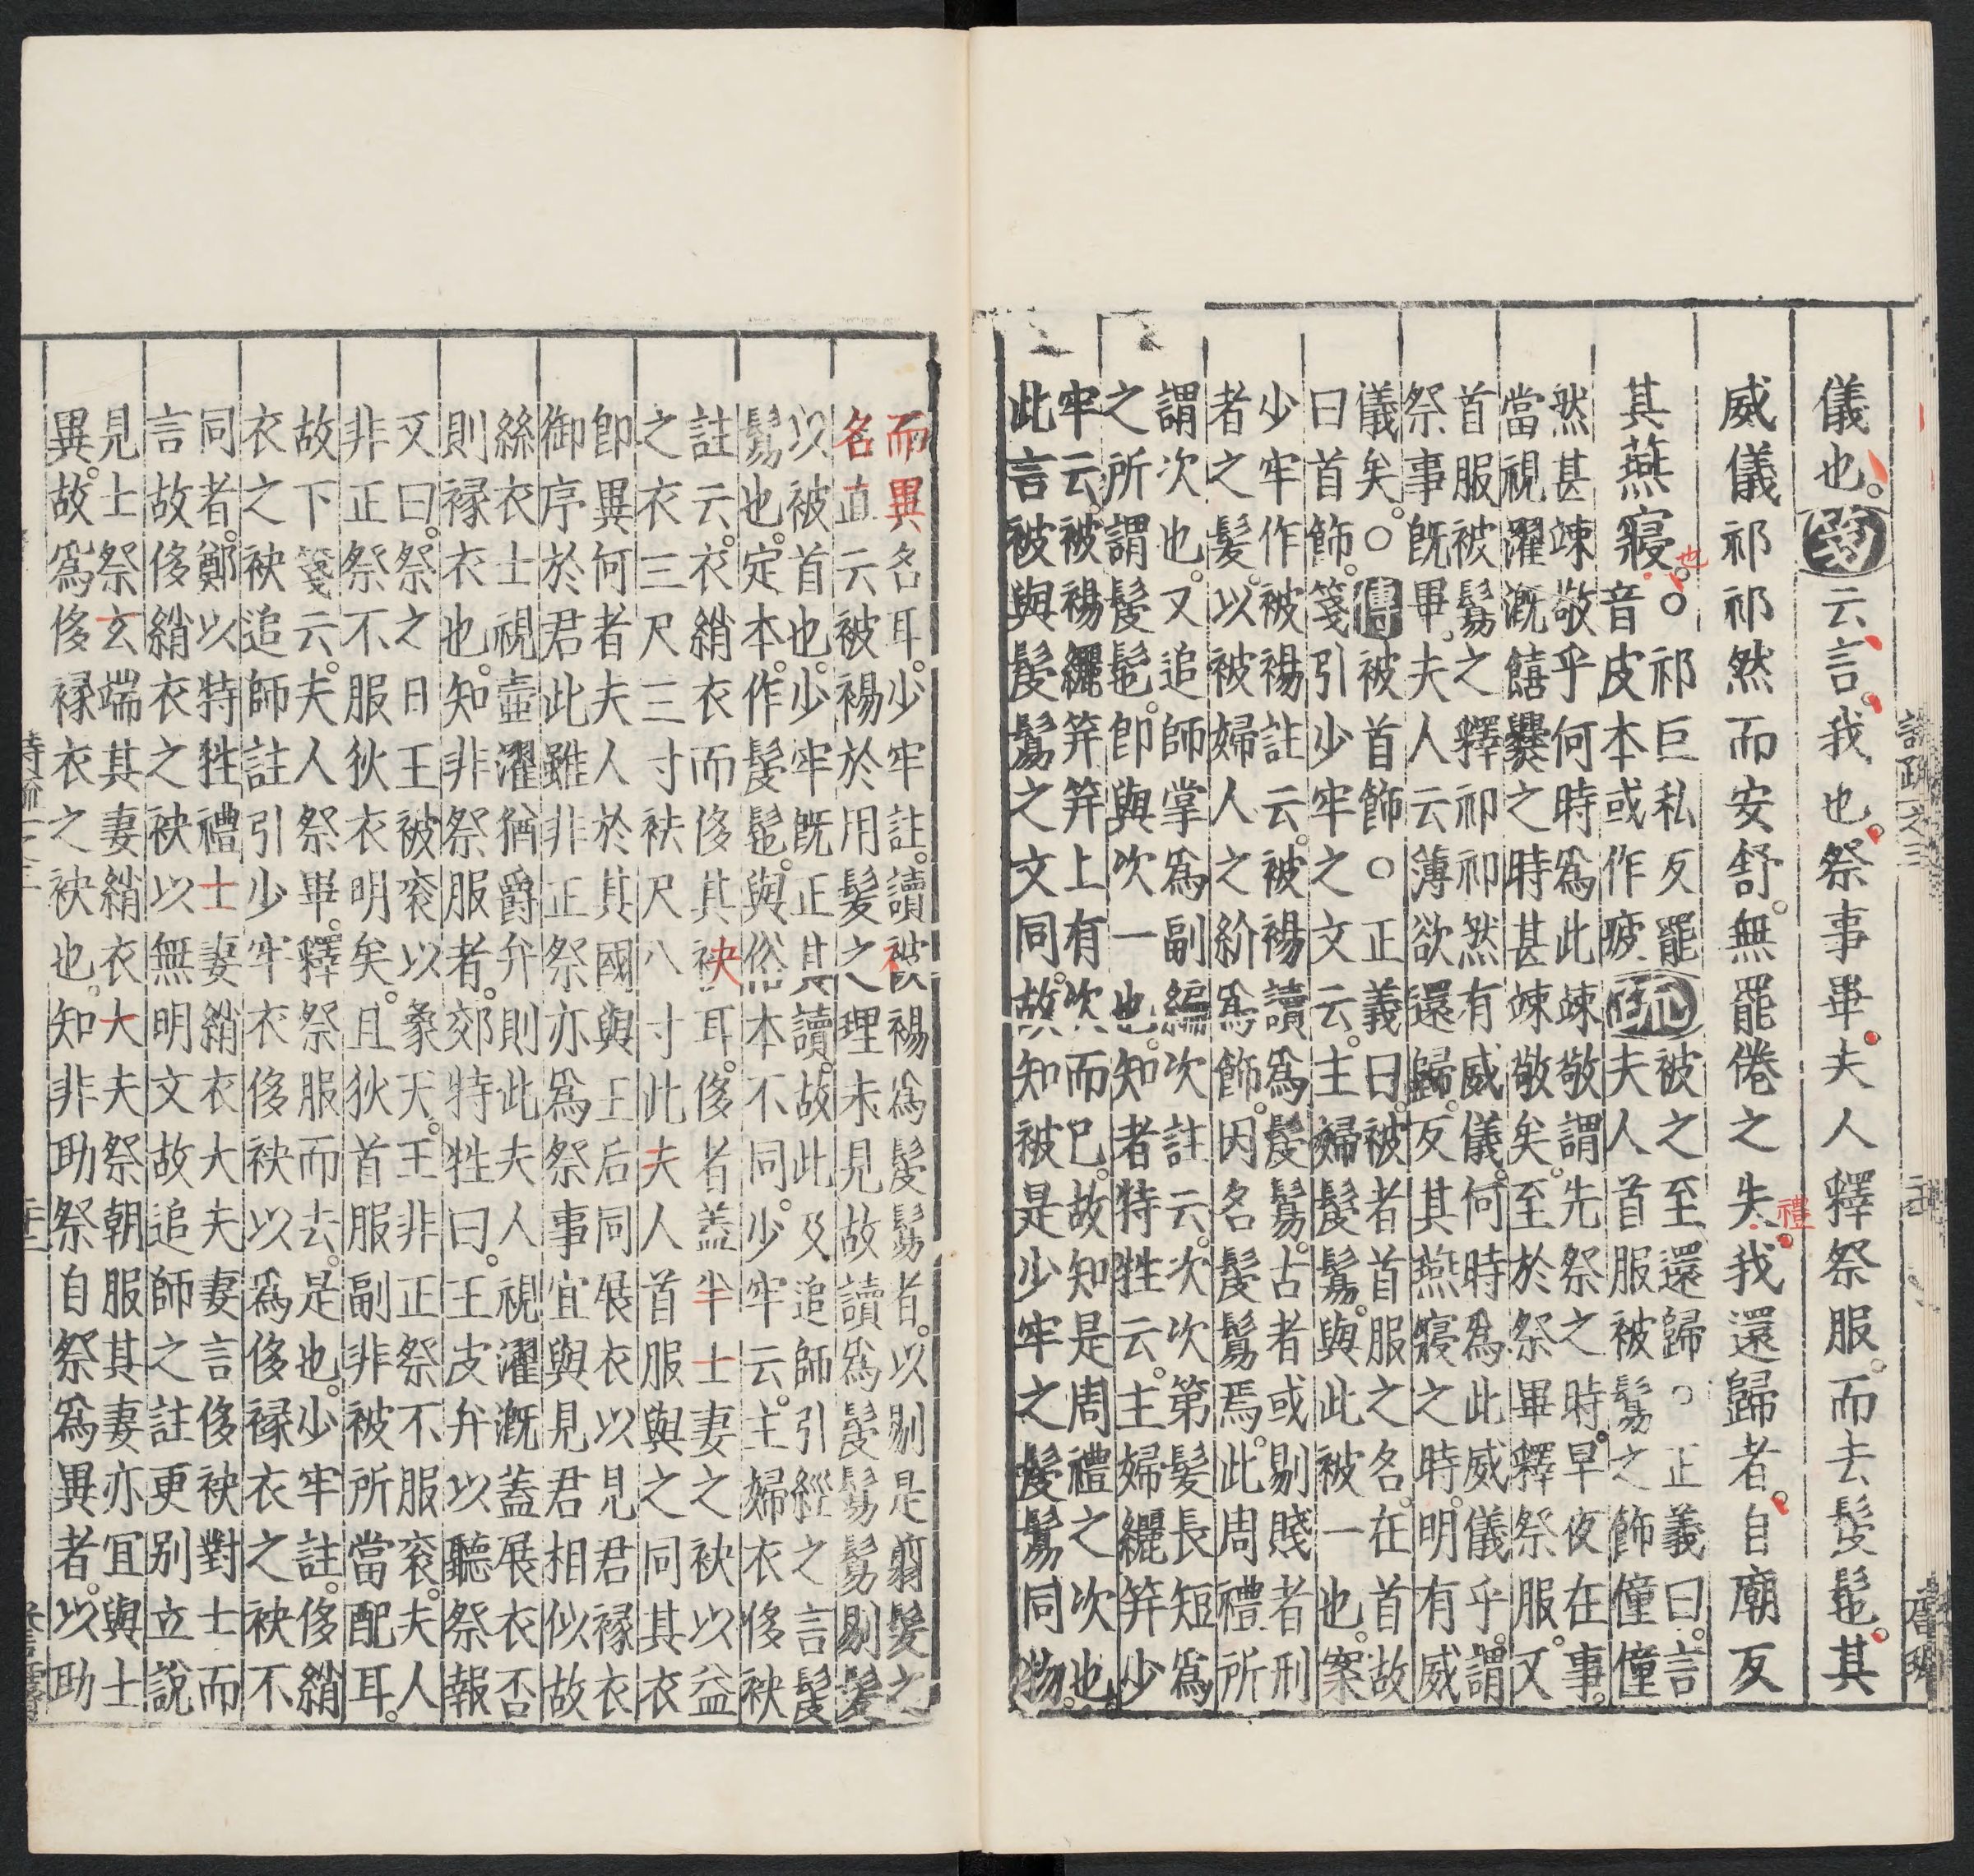 儀也。箋云言。我也。祭事畢。夫人釋祭服。而去髲髢。其
威儀祁祁然而安舒。無罷倦之失。禮我還歸者。自廟反
其燕寢。也○
祁巨私反罷
音皮本或作疲
疏
被之至還歸○正義曰。言
夫人首服被鬄之飾僮僮
然甚竦敬乎何時為此竦敬謂先祭之時。早夜在事。
當視濯溉饎爨之時甚竦敬矣。至於祭畢釋祭服。又
首服被鬄之釋祁祁然有威儀。何時為此威儀乎。謂
祭事既畢。夫人云薄欲還歸。反其燕寢之時。明有威
儀矣。○傳被首飾○正義曰。被者首服之名。在首故
曰首飾。箋引少牢之文云。主婦髲鬄。與此被一也。案
少牢作被裼註云。被裼讀為髲鬄。古者或剔賤者刑
者之髮。以被婦人之紒為飾。因名髲鬄焉。此周禮所
謂次也。又追師掌為副編次註云。次次第髮長短為
之所謂髲髢。即與次一也。知者特牲云。主婦纚笄少
牢云。被裼纚笄笄上有次而已。故知是周禮之次也。
此言被與髲鬄之文同。故知被是少牢之髲鬄同物。
而異名耳。少牢註。讀被裼為髲鬄者。以剔是翦髮之
名直云被裼於用髮之理未見故讀為髲鬄鬄剔髮
以被首也。少牢既正其讀。故此及追師引經之言髲
鬄也。定本。作髲髢。與俗本不同。少牢云。主婦衣侈袂
註云。衣綃衣而侈其袂耳。侈者蓋半士妻之袂以益
之衣三尺三寸袪尺八寸此夫人首服與之同其衣
即異何者夫人於其國與王后同展衣以見君褖衣
御序於君此雖非正祭亦為祭事宜與見君相似故
絲衣士視壺濯猶爵弁則此夫人視濯溉蓋展衣否
則褖衣也。知非祭服者。郊特牲曰。王皮弁以聽祭報
又曰。祭之日王被袞以象天。王非正祭不服袞。夫人
非正祭不服狄衣明矣。且狄首服副非被所當配耳。
故下箋云。夫人祭畢。釋祭服而去。是也。少牢註。侈綃
衣之袂追師註引少牢衣侈袂以為侈褖衣之袂不
同者。鄭以特牲禮士妻綃衣大夫妻言侈袂對士而
言故侈綃衣之袂以無明文故追師之註更別立說
見士祭玄端其妻綃衣大夫祭朝服其妻亦宜與士
異。故為侈褖衣之袂也。知非助祭自祭為異者。以助